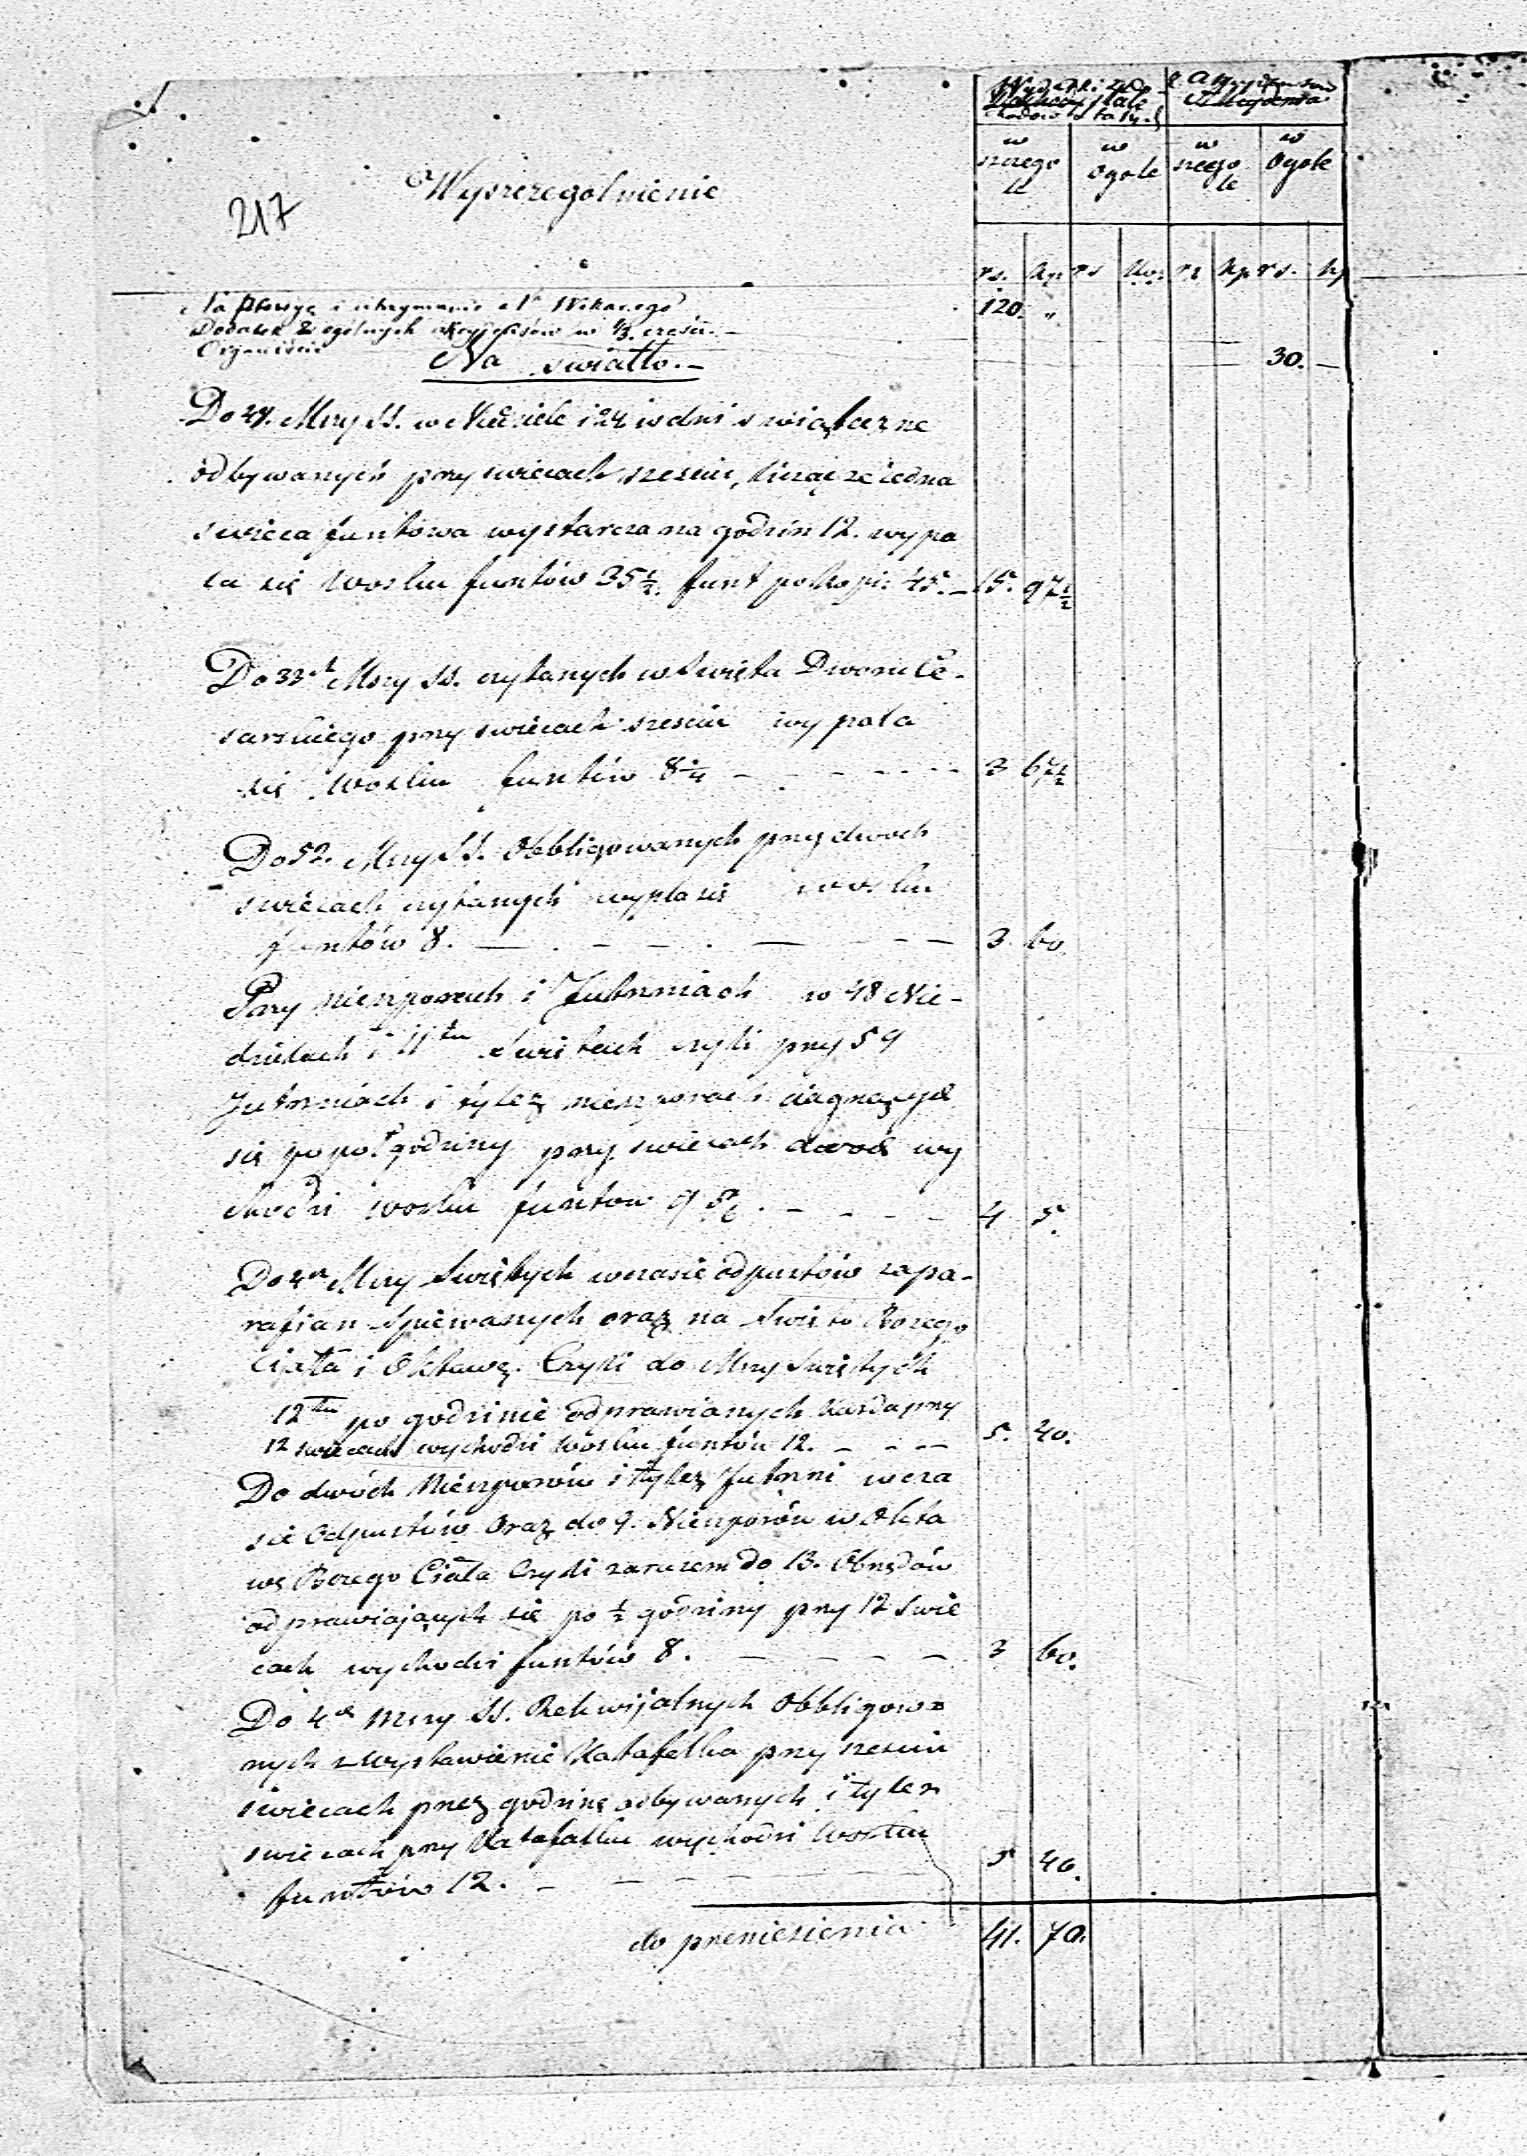 Wydatki z do-
chodów stałych
z Akcydensów
w szczegó le
w Ogole
w szczegó le
w Ogole
217
Wyszczegolnienie
rs. Kp rs Kop rs Kp rs. Kp
Na Pensyę i utrzymanie Wikarego 120. "
Dodatek z ogólnych akcydensów w 1/3 części.
Organiście 30. —
Na swiatło. —
Do 47. Mszy SS. w Niedziele i 24 w dni swiąteczne
odbywanych przy swiecach szesciu, licząc ze iedna
swieca funtowa wystarcza na godzin 12. wypa
la się Wosku funtów 35 1/2. funt po kopi: 45. — 15. 97 1/2
Do 33ch Mszy SS. czytanych w Swięta Dworu Ce-
sarskiego przy swiecach szesciu wypala
się Wosku funtów 8 1/4 — 3 67 1/2
Do 52. Mszy SS. Obbligowanych przy dwoch
swiecach czytanych wypla sie wosku
funtów 8. — 3. 60.
Przy nieszporach i Jutrzniach w 48 Nie-
dzielach i 11tu Swiętach czyli przy 59
Jutrzniach i tylez nieszporach ciągnących
się po poł godziny przy swiecach dwóch wy
chodzi wosku funtow 9 5/6. — 4 5.
Do 4ch Mszy Swiętych w czasie odpustów za pa-
rafian Spiewanych oraz na Swięto Bozego
Ciała i Oktawę. Czyli do Mszy Swiętych
12tu po godzinie odprawianych kazda przy
12 swiecach wychodzi Wosku funtów 12. — 5. 40.
Do dwóch Nieszporów i tylez Jutrzni w cza
sie Odpustów Oraz do 9. Nieszporów w Okta
wę Bozego Ciała Czyli zarazem do 13. Obrzędów
odprawiających się po 1/2 godziny przy 12 Swie
cach wychodzi funtów 8. — 3 60.
Do 4ch Mszy SS. Rekwijalnych Obbligowa
nych z Wystawienie Katafalka przy szesciu
swiecach przez godzinę odbywanych i tylez
swiecach przy Katafalku wychodzi Wosku
funtów 12. — 5 40.
do przeniesienia 41. 70.